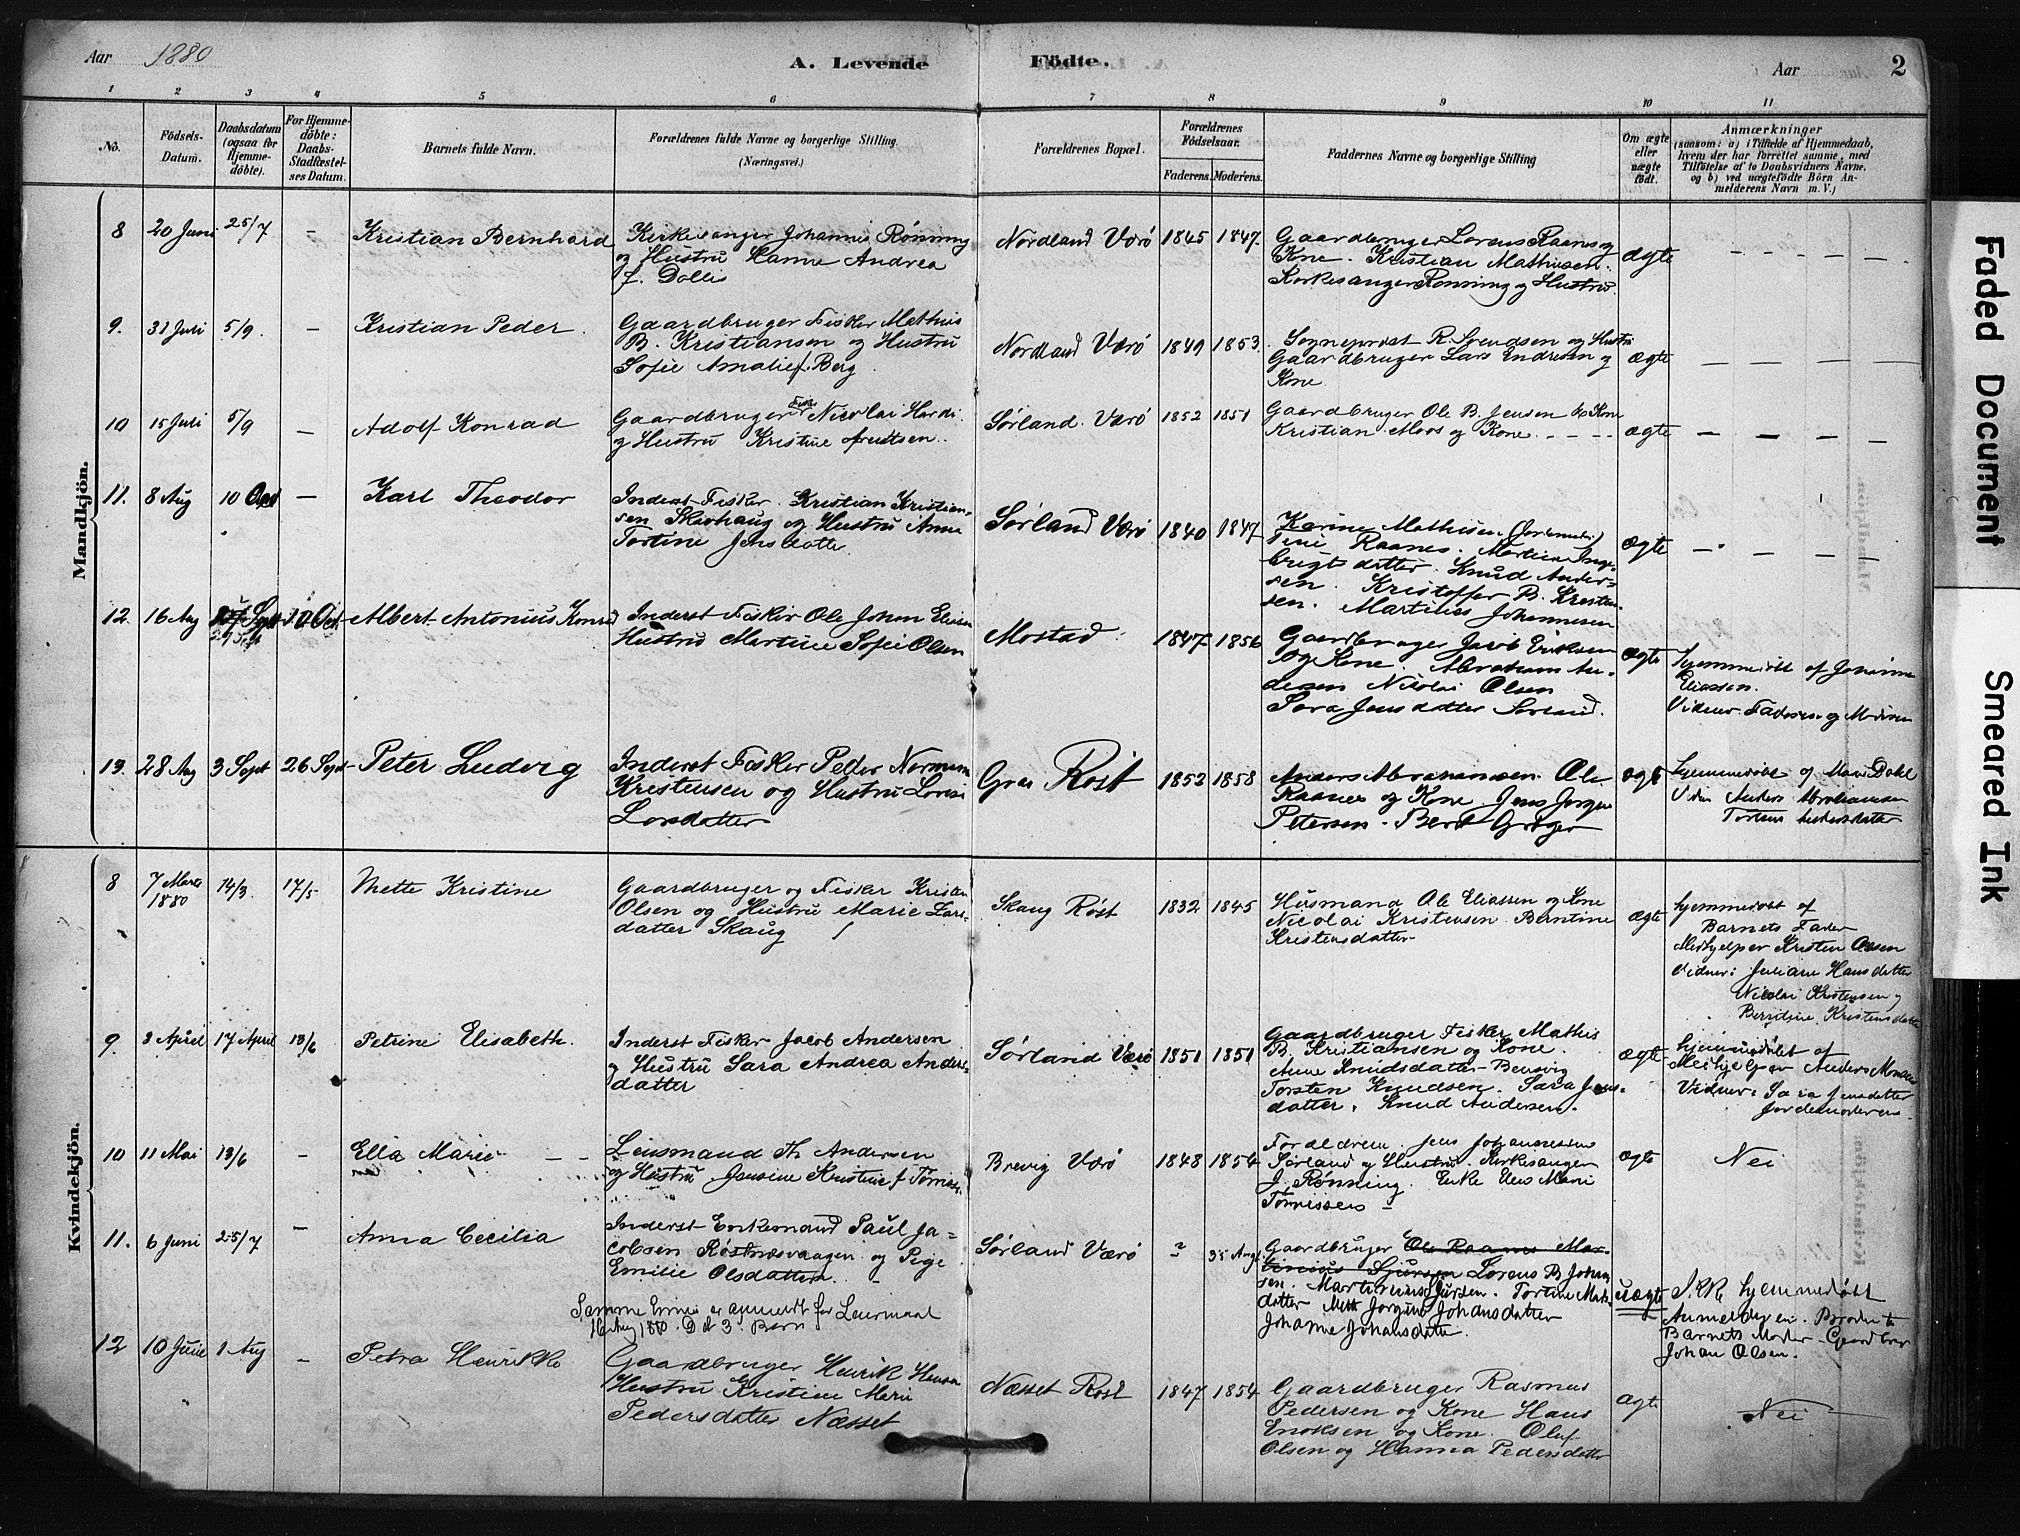 Aar 1880
A. Levende Födte.
Aar
2
1 2 3 4 5 6 7 8 9 10 11
No.
Födsels-Datum.
Daabsdatum (ogsaa for Hjemme-döbte).
For Hjemme-döbte: Daabs-Stadfæstel-ses Datum.
Barnets fulde Navn.
Forældrenes fulde Navne og borgerlige Stilling (Næringsvei.)
Forældrenes Bopæl.
Forældrenes Födselsaar.
Faderens. Moderens.
Faddernes Navne og borgerlige Stilling
Om ægte eller uægte födt.
Anmærkninger
(saasom: a) i Tilfælde af Hjemmedaab,
hvem der har forrettet samme, med
Tilföielse af to Daabsvidners Navne,
og b) ved uægtefödte Börn An-
melderens Navn m. V.)
Mandkjön.
8 20 Juni 25/7 – Kristian Bernhard
Kirkesanger Johannis Rønning
og Hustru Hanna Andrea
f. Dolles
Nordland Værö 1845 1847
Gaardbruger Lorens Raanes og
Kone. Kristian Mathisen.
Kirkesanger Rønning og Hustru
ægte
9. 31 Juli 5/9. – Kristian Peder
Gaardbruger Fisker Mathis
B. Kristiansen og Hustru
Sofie Amalie f. Berg
Nordland Værö 1849 1853
Sogneprest R. Svendsen og Hustru
Gaardbruger Lars Endresen og
Kone
ægte
10 15 Juli 5/9 – Adolf Konrad
Gaardbruger Fisker Nicolai Hardi
og Hustru Kristine Arntsen
Sørland Værö 1852 1851
Gaardbruger Ole B. Jensen og Kone
Kristian Moos og Kone
ægte
11. 8 Aug 10 Oct – Karl Theodor
Inderst Fisker Kristian Kristian-
sen Skarhaug og Hustru Anna
Tortine Jensdatter
Sørland Værö 1840 1847
Karine Mathisen (Jordemoder)
Tine Raanes. Martine Inge-
brigtsdatter. Knud Ander-
sen. Kristoffer B. Kristen-
sen. Martinus Johannesen
ægte
12. 16 Aug 10 Oct. Albert Antonius Konrad
Inderst Fisker Ole Johan Eliasen
Hustru Martine Sofie Olsen
Mostad 1847 1856
Gaardbruger Jacob Eriksen
og Kone. Abraham An-
dersen Nicolai Olsen
Sara Jensdatter Sørland.
ægte
Hjemmedøbt af Johanna
Eliassen.
Vidner Faderen og Moderen
13. 28 Aug 3 Sept 26 Sept Peter Ludvig
Inderst Fisker Peder Normann
Kristensen og Hustru Lovise
Larsdatter
Røst 1852 1858
Anders Abrahamsen Ole
Raanes og Kone Jens Jørgen
Petersen. Berit Greger
ægte
Hjemmedøbt af Mari Dahl
Vidn Anders Abrahamsen
Andersdatter
Kvindekjön.
8 7 Marts 1880 14/3 17/5 Mette Kristine
Gaardbruger og Fisker Kristen
Olsen og Hustru Marie Lars-
datter Skaug
Skaug Røst 1832 1845
Husmand Ole Eliassen og Kone
Nicolai Kristensen Berntine
Kristensdatter
ægte
hjemmedøbt af
Barnets Fader
Medhjelper Kristen Olsen
Vidner: Juliane Hansdatter
Nicolai Kristensen og
Berntine Kristensdatter
9. 3 April 17 April 13/6 Petrine Elisabeth.
Inderst Fisker Jacob Andersen
og Hustru Sara Andrea Anders-
datter
Sørland Værö 1851 1851
Gaardbruger Fisker Mathis
B. Kristiansen og Kone.
Ane Knudsdatter Brevig
Torsten Knudsen. Sara Jens-
datter. Knud Andersen.
ægte
hjemmedøbt af
Medhjelper Anders
Vidner: Sara Jensdatter
Jordemoderen
10 11 Mai 13/6 – Ella Marie
Lensmand Th Andersen
og Hustru Jensine Kristine f Tønnesen
Brevig Værö 1848 1854
Forældrene. Jens Johannessen
Sørland og Hustru. Kirkesanger
J. Rønning. Enke Elen Marie
Tønnissen
ægte
Nei
11. 6 Juni 25/7 – Anna Cecilia
Inderst Enkemand Paul Ja-
cobsen Røstnesvaagen og Pige
Emilie Olsdatter
Sørland Værö ? 35 Aar
Gaardbruger Ole Raanes Mar-
tinius Sjursen Lorens B Johan-
sen. Martinius Sjursen. Tortine Mads-
datter Mette Jorgine Johansdatter
Johanne Johansdatter.
uægte
Ikke hjemmedøbt
Anmelderen: Broder til
Barnets Moder Gaardbruger
Johan Olsen.
Samme Emilie er anmeldt for Leiermaal
16 Aug 1880. Det 3. Barn
12 10 Juni 1 Aug – Petra Henrikke
Gaardbruger Henrik Hansen
Hustru Kristine Marie
Pedersdatter Næsset
Næsset Røst 1847 1854
Gaardbruger Rasmus
Pedersen og Kone Hans
Enoksen og Kone. Oluf
Olsen og Hanna Pedersdatter
ægte
Nei
Faded Document
Smeared Ink